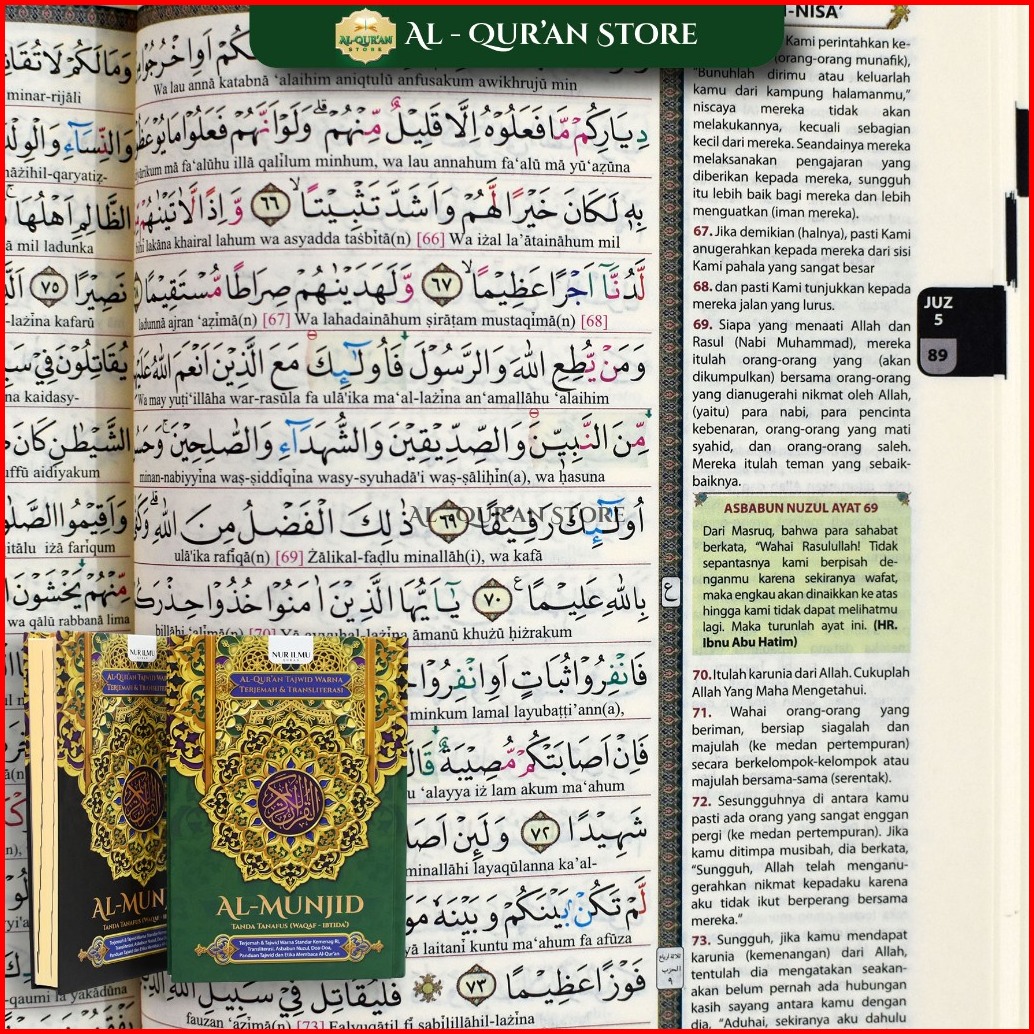 AL - QUR'AN STORE
AL-QUR'AN
STORE
-NISA'
وَمَالَكُمْ لَا تُقَا
minar-rijāli
وَالنِّسَاۤءِ وَالْوِلْدَ
الظَّالِمِ اَهْلُهَا
ā mil ladunka
نَصِيْرًا ٧٥
-lażīna kafarū
يُقَاتِلُوْنَ فِيْ سَ
na kaidasy-
الشَّيْطٰنِ كَانَ
uffū aidiyakum
وَاَقِيْمُوا الصَّلٰو
itālu iżā farīqum
مِّنْهُمْ يَخْشَوْنَ
wa qālū rabbanā lima
-qaumi lā yakādūna
اَوِ اخْرُجُوْا
Wa lau annā katabnā ‘alaihim aniqtulū anfusakum awikhrujū min
دِيَارِكُمْ مَّا فَعَلُوْهُ اِلَّا قَلِيْلٌ مِّنْهُمْ ۗوَلَوْ اَنَّهُمْ فَعَلُوْا مَا يُوْعَظُ
yārikum mā fa‘alūhu illā qalīlum minhum, wa lau annahum fa‘alū mā yū‘aẓūna
بِهٖ لَكَانَ خَيْرًا لَّهُمْ وَاَشَدَّ تَثْبِيْتًا ٦٦ وَّاِذًا لَّاٰتَيْنٰهُمْ
bihī lakāna khairal lahum wa asyadda taṡbītā(n) [66] Wa iżal la’ātaināhum mil
لَّدُنَّآ اَجْرًا عَظِيْمًا ٦٧ وَّلَهَدَيْنٰهُمْ صِرَاطًا مُّسْتَقِيْمًا
ladunnā ajran ‘aẓīmā(n) [67] Wa lahadaināhum ṣirāṭam mustaqīmā(n) [68]
وَمَنْ يُّطِعِ اللّٰهَ وَالرَّسُوْلَ فَاُولٰۤىِٕكَ مَعَ الَّذِيْنَ اَنْعَمَ اللّٰهُ عَلَيْهِ
Wa may yuṭi‘illāha war-rasūla fa ulā'ika ma‘al-lażīna an‘amallāhu ‘alaihim
مِّنَ النَّبِيّٖنَ وَالصِّدِّيْقِيْنَ وَالشُّهَدَاۤءِ وَالصّٰلِحِيْنَ ۚ وَحَسُ
minan-nabiyyīna waṣ-ṣiddīqīna wasy-syuhadā'i waṣ-ṣāliḥīn(a), wa ḥasuna
اُولٰۤىِٕكَ رَفِيْقًا ٦٩ ذٰلِكَ الْفَضْلُ مِنَ اللّٰهِ ۗوَكَفٰ
AL-QUR'AN STORE
ulā'ika rafīqā(n) [69] Żālikal-faḍlu minallāh(i), wa kafā
بِاللّٰهِ عَلِيْمًا ٧٠ يٰٓاَيُّهَا الَّذِيْنَ اٰمَنُوْا خُذُوْا حِذْرَكُ
billāhi ‘alīmā(n) [70] Yā ayyuhal-lażīna āmanū khużū ḥiżrakum
فَانْفِرُوْا ثُبَاتٍ اَوِ انْفِرُوْا
minkum lamal layubaṭṭi’ann(a),
فَاِنْ اَصَابَتْكُمْ مُّصِيْبَةٌ قَالَ
u ‘alayya iż lam akum ma‘ahum
شَهِيْدًا ٧٢ وَلَىِٕنْ اَصَا
minallāhi layaqūlanna ka’al-
لَّمْ تَكُنْۢ بَيْنَكُمْ وَبَيْنَهٗ مَوَ
yā laitanī kuntu ma‘ahum fa afūza
فَوْزًا عَظِيْمًا ٧٣ فَلْيُقَاتِلْ فِيْ سَبِيْلِ اللّٰهِ
fauzan ‘aẓīmā(n) [73] Falyuqātil fī sabīlillāhil-lażīna
ع
Kami perintahkan ke-
(orang-orang munafik),
“Bunuhlah dirimu atau keluarlah
kamu dari kampung halamanmu,”
niscaya mereka tidak akan
melakukannya, kecuali sebagian
kecil dari mereka. Seandainya mereka
melaksanakan pengajaran yang
diberikan kepada mereka, sungguh
itu lebih baik bagi mereka dan lebih
menguatkan (iman mereka).
67. Jika demikian (halnya), pasti Kami
anugerahkan kepada mereka dari sisi
Kami pahala yang sangat besar
68. dan pasti Kami tunjukkan kepada
mereka jalan yang lurus.
69. Siapa yang menaati Allah dan
Rasul (Nabi Muhammad), mereka
itulah orang-orang yang (akan
dikumpulkan) bersama orang-orang
yang dianugerahi nikmat oleh Allah,
(yaitu) para nabi, para pencinta
kebenaran, orang-orang yang mati
syahid, dan orang-orang saleh.
Mereka itulah teman yang sebaik-
baiknya.
ASBABUN NUZUL AYAT 69
Dari Masruq, bahwa para sahabat
berkata, “Wahai Rasulullah! Tidak
sepantasnya kami berpisah de-
nganmu karena sekiranya wafat,
maka engkau akan dinaikkan ke atas
hingga kami tidak dapat melihatmu
lagi. Maka turunlah ayat ini. (HR.
Ibnu Abu Hatim)
70. Itulah karunia dari Allah. Cukuplah
Allah Yang Maha Mengetahui.
71. Wahai orang-orang yang
beriman, bersiap siagalah dan
majulah (ke medan pertempuran)
secara berkelompok-kelompok atau
majulah bersama-sama (serentak).
72. Sesungguhnya di antara kamu
pasti ada orang yang sangat enggan
pergi (ke medan pertempuran). Jika
kamu ditimpa musibah, dia berkata,
“Sungguh, Allah telah menganu-
gerahkan nikmat kepadaku karena
aku tidak ikut berperang bersama
mereka.”
73. Sungguh, jika kamu mendapat
karunia (kemenangan) dari Allah,
tentulah dia mengatakan seakan-
akan belum pernah ada hubungan
kasih sayang antara kamu dengan
dia, “Aduhai, sekiranya aku dahulu
JUZ
5
89
NUR ILMU
AL-QUR'AN TAJWID WARNA
TERJEMAH & TRANSLITERASI
AL-MUN
NUR ILMU
AL-QUR'AN TAJWID WARNA
TERJEMAH & TRANSLITERASI
AL-MUNJID
TANDA TANAFUS (WAQAF - IBTIDA')
Terjemah & Tajwid Warna Standar Kemenag RI,
Transliterasi, Asbabun Nuzul, Doa-Doa,
Panduan Tajwid dan Etika Membaca Al-Qur'an